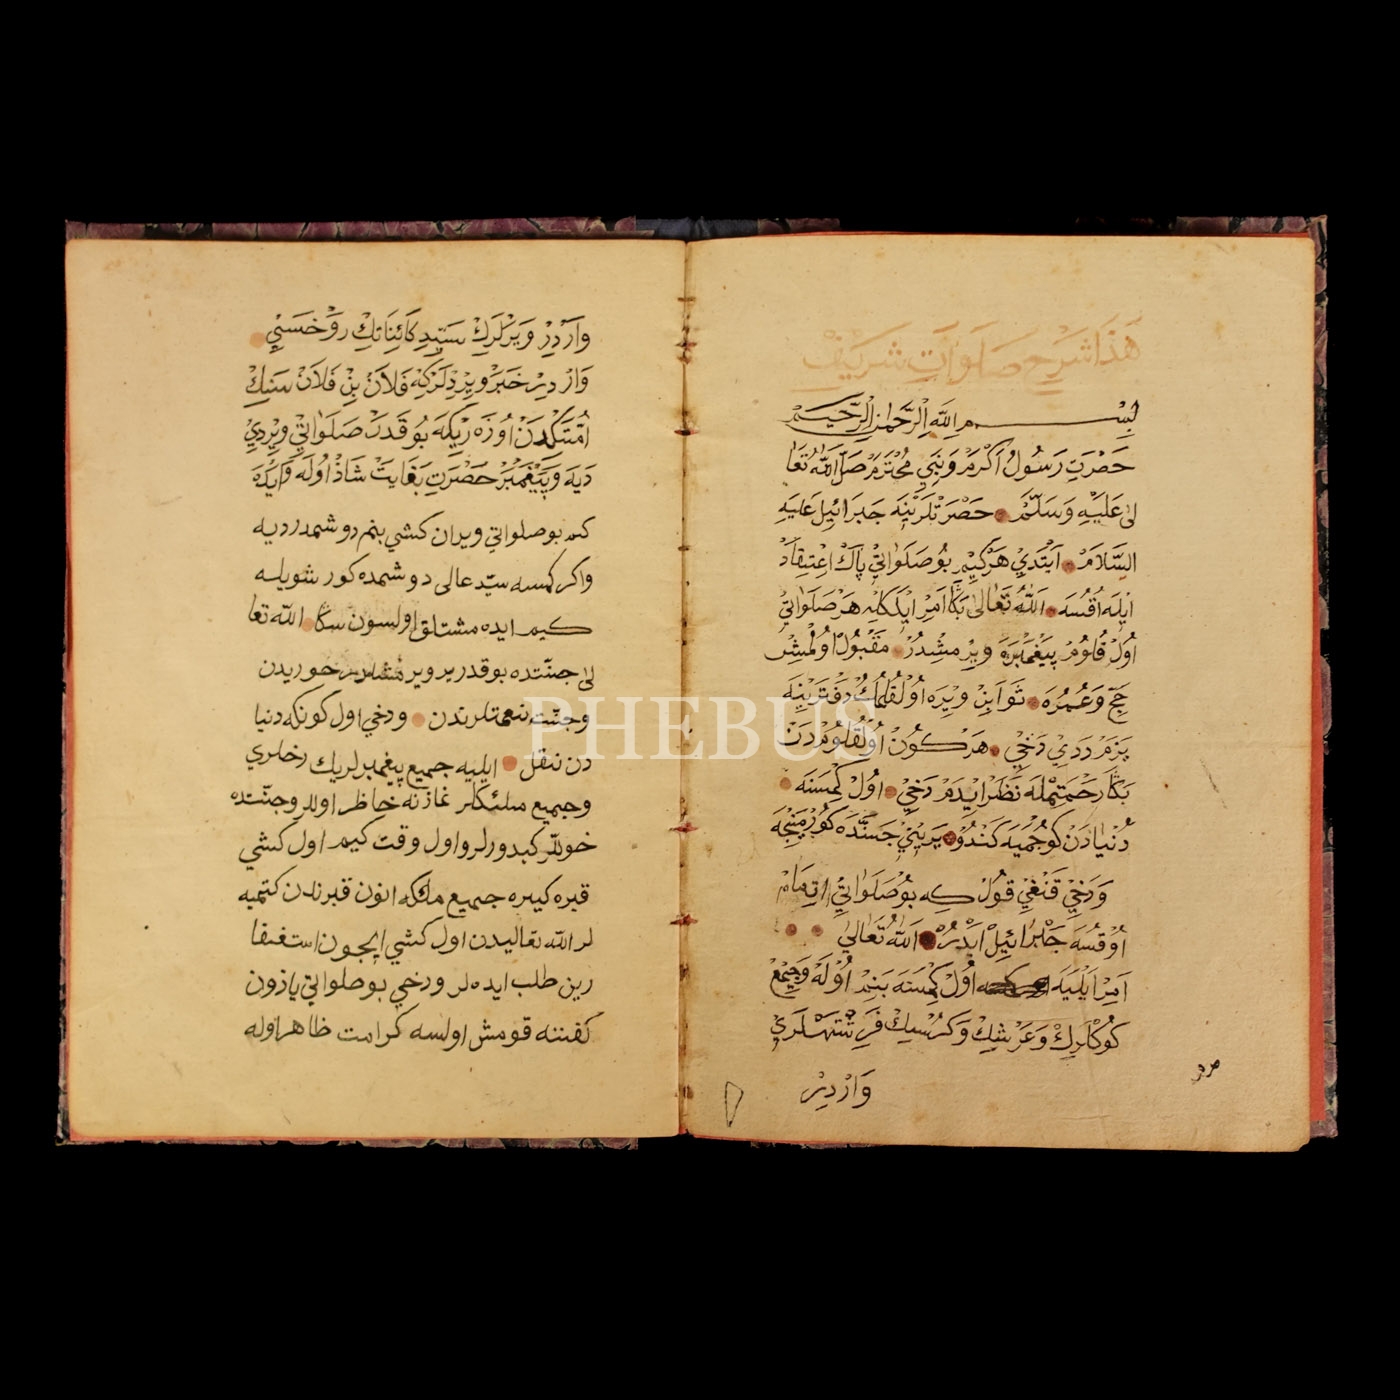 هَذَا شَرْحِ صَلَوَاتِ شَرِيفْ
بِسْمِ اللّهِ الرَّحْمٰنِ الرَّحِيمِ
حَضْرَتِ رَسُولُ اَكْرَمْ وَنَبِيِ مُحْتَرَمْ صَلَّى اللّهُ تَعَا
لىٰ عَلَيْهِ وَسَلَّمْ حَضْرَتْلَرِينَه جَبَرَائِيل عَلَيْهِ
السَّلَامْ اَيْتْدِي هَرْكِيمْ بُوصَلَوَاتِيْ پَاكْ اِعْتِقَادْ
اِيلَه اُقُسَه اَللّهُ تَعَالىٰ بَكَا اَمِرْ اَيْلَكِه هَرْ صَلَوَاتِيْ
اُولْ قُلُومْ پَيْغَمْبَرَه وِيرْمِشْدُرْ مَقْبُولْ اُولْمُشْ
حَجّ وَعُمْرُه ثَوَابِنْ وِيرَه اُولْقُلُمُكْ دَفْتَرِينَه
يَزَمْ دَرَدِي دَخِيْ هَرْكُونْ اُولْ قُلُومْ دَنْ
بَكَا رَحْمَتُمْلَه نَظَرْ ايدَمْ دَخِيْ اُولْ كِمْسَنَه
دُنْيَادَنْ كُوجْمَيَه كَنْدُو يَرِينِيْ جَنَّتْدَه كُورْمَيِنْجَه
وَدَخِيْ قَنْغِيْ قُولْ كِه بُوصَلَوَاتِيْ اِتِمَامْ
اُوقُسَه جَبْرَائِيلْ اَيْدُرْ اَللّهُ تَعَالىٰ
اَمِرْ اَيْلَيَه اُولْ كِمْسَنَه بَنِمْ اُولَه وَجَمِيعْ
كُوكْلَرِكْ وَعَرْشِكْ وَكُرْسِيكْ فَرِشْتَهْلَرِيْ
وَارْدِرْ
وَارْدِرْ وَيَرْلَرِكْ سَيِّدِ كَائِنَاتِكْ رَوْ خَسْنِي
وَارْدِرْ خَبَرْ وِيرِدِلَرْكِه فَلَانْ بِنْ فَلَانْ سَنِكْ
اُمَّتِكْدَنْ اُوزَه رِيكَه بُوقَدَرْ صَلَوَاتِيْ وِيرْدِيْ
دَيَه وَپَيْغَمْبَرْ حَضْرَتِ بَغَايَتْ شَاذْ اُولَه وَايْدَه
كم بوصلواتي ويران كشي بنم دوشمدرديه
واكر كمسه سيّد عالى دوشمده كور شويله
كيم ايده مشتلق اولسون سكا اللّه تعا
لى جنّتده بوقدر ير ويرمشلردر حوريدن
وجنّت نعمتلرندن ودخي اول كونكه دنيا
دن نقل ايليه جميع پيغمبرلريك رخلري
وجميع ملئكلر غازنه حاظر اوللر وجنّتده
خونلّر كبدورلر واول وقت كيم اول كشي
قبره كيره جميع ملكه انون قبرندن كتميه
لر اللّه تعاليدن اول كشي ايچون استغفا
رين طلب ايده لر ودخي بوصلواتي يازون
كفننه قومش اولسه كرامت ظاهر اوله